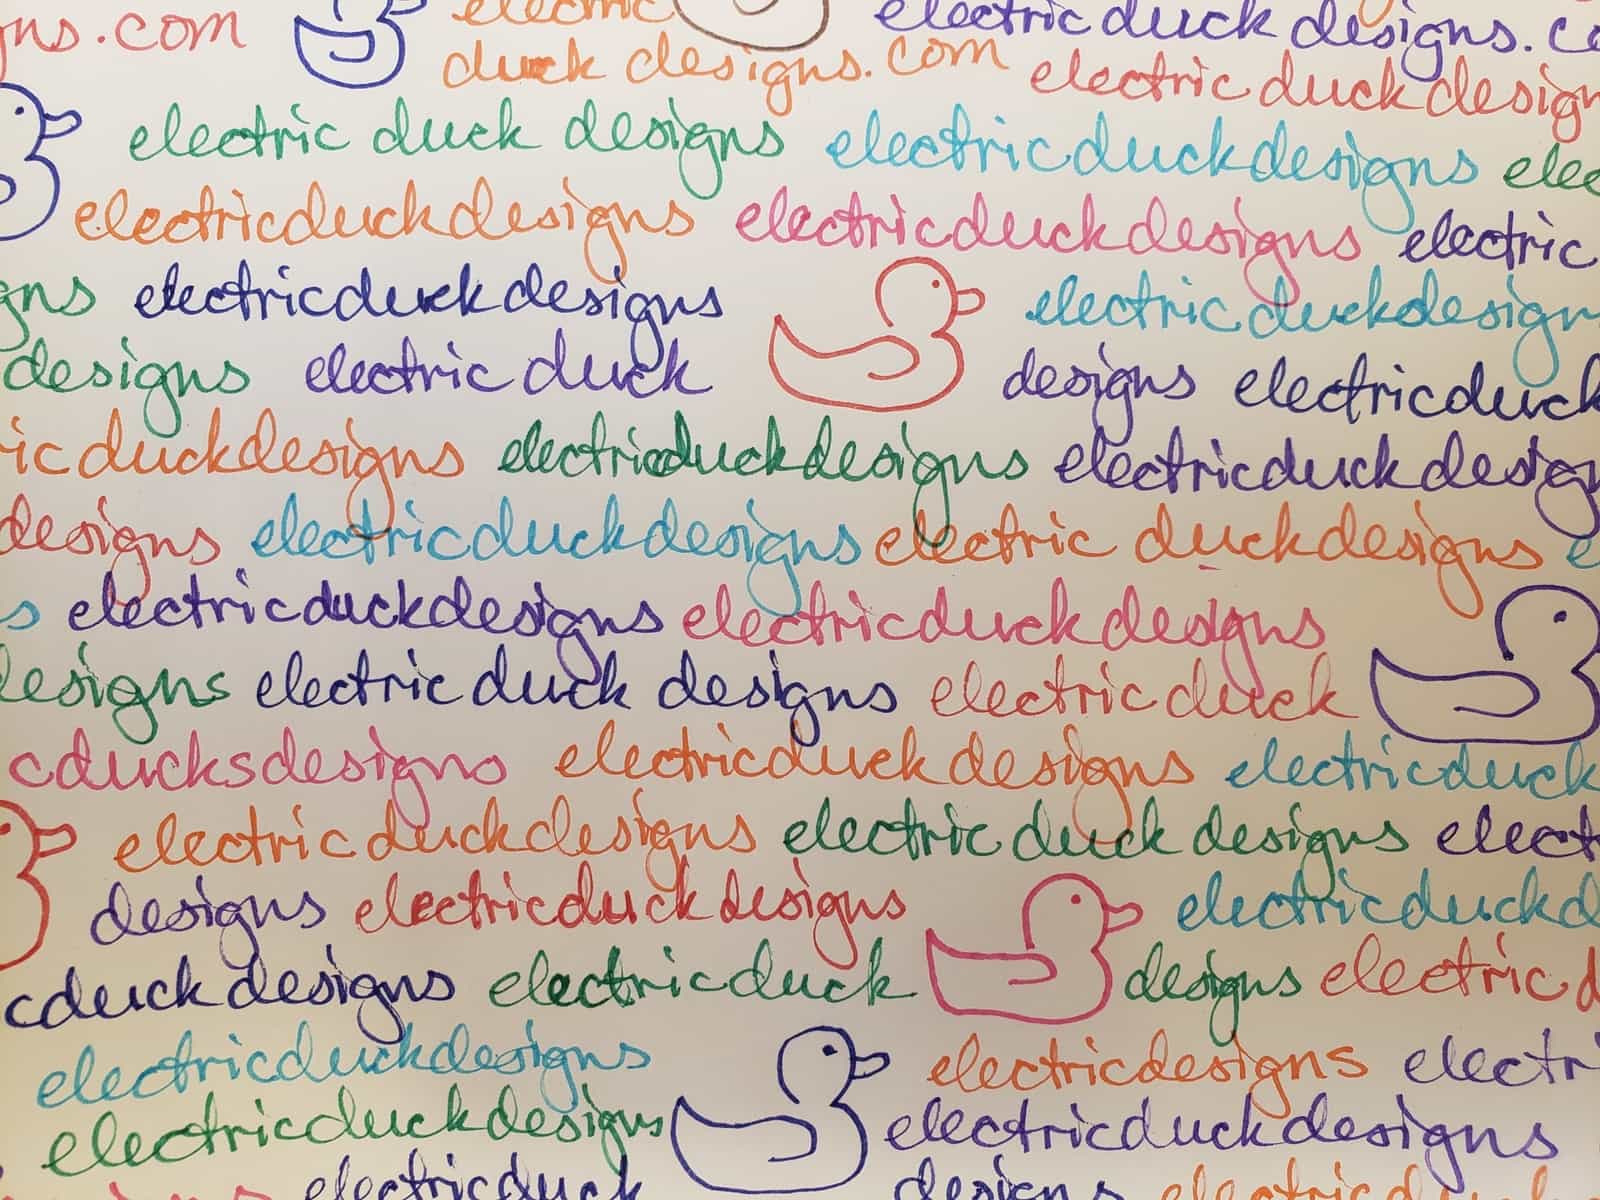 gns.com electric electric duck designs. co
duck designs.com electric duck design
electric duck designs electricduckdesigns elec
electricduckdesigns electricduckdesigns electric
gns electricduckdesigns electric duckdesign
designs electric duck designs electricduck
ic duckdesigns electricduckdesigns electricduck desig
designs electricduckdesigns electric duckdesigns e
s electricduckdesigns electricduckdesigns
designs electric duck designs electric duck
cducksdesigns electricduckdesigns electricduck
electric duckdesigns electric duck designs elect
designs electricduck designs electricduckd
cduck designs electricduck designs electric d
electricduckdesigns electricdesigns electri
electricduckdesigns electricduckdesigns
electricduck designs electricd